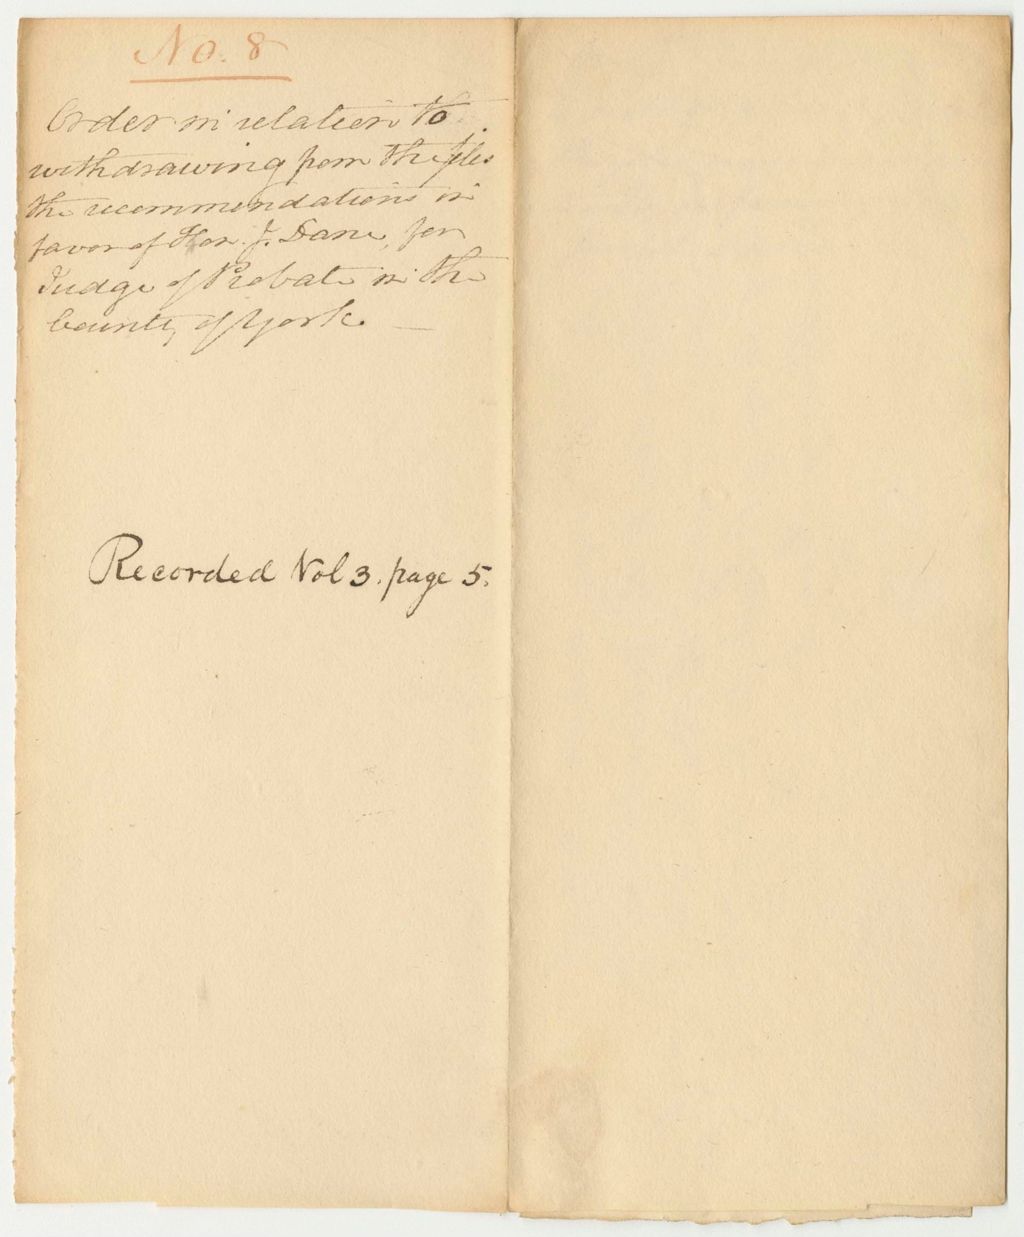 No. 8
Order in relation to
withdrawing from the files
the recommendations in
favor of Hon. J. Dane, for
Judge of Probate in the
County of York. —
Recorded Vol 3. page 5.